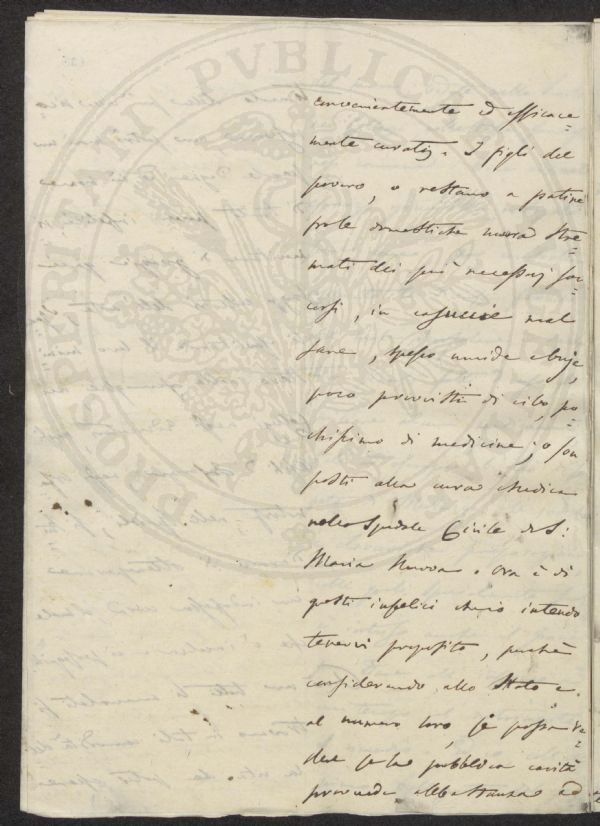 convenientemente ed efficace=
mente curati. I figli del
povero, o restano a patire
fra le domestiche mura stre=
mati dei più necessarj soc=
corsi, in casuccie mal
sane, spesso umide e buje,
poco provvisti di cibo, po=
chissimo di medicine; o son
posti alla cura medica
nello Spedale Civile di S:
Maria Nuova. Ora è di
questi infelici ch'io intendo
tenervi proposito, perchè
considerando allo Stato e
al numero loro, si possa ve=
dere se la pubblica carità
provveda abbastanza ad
PROSPERITATI PVBLICAE